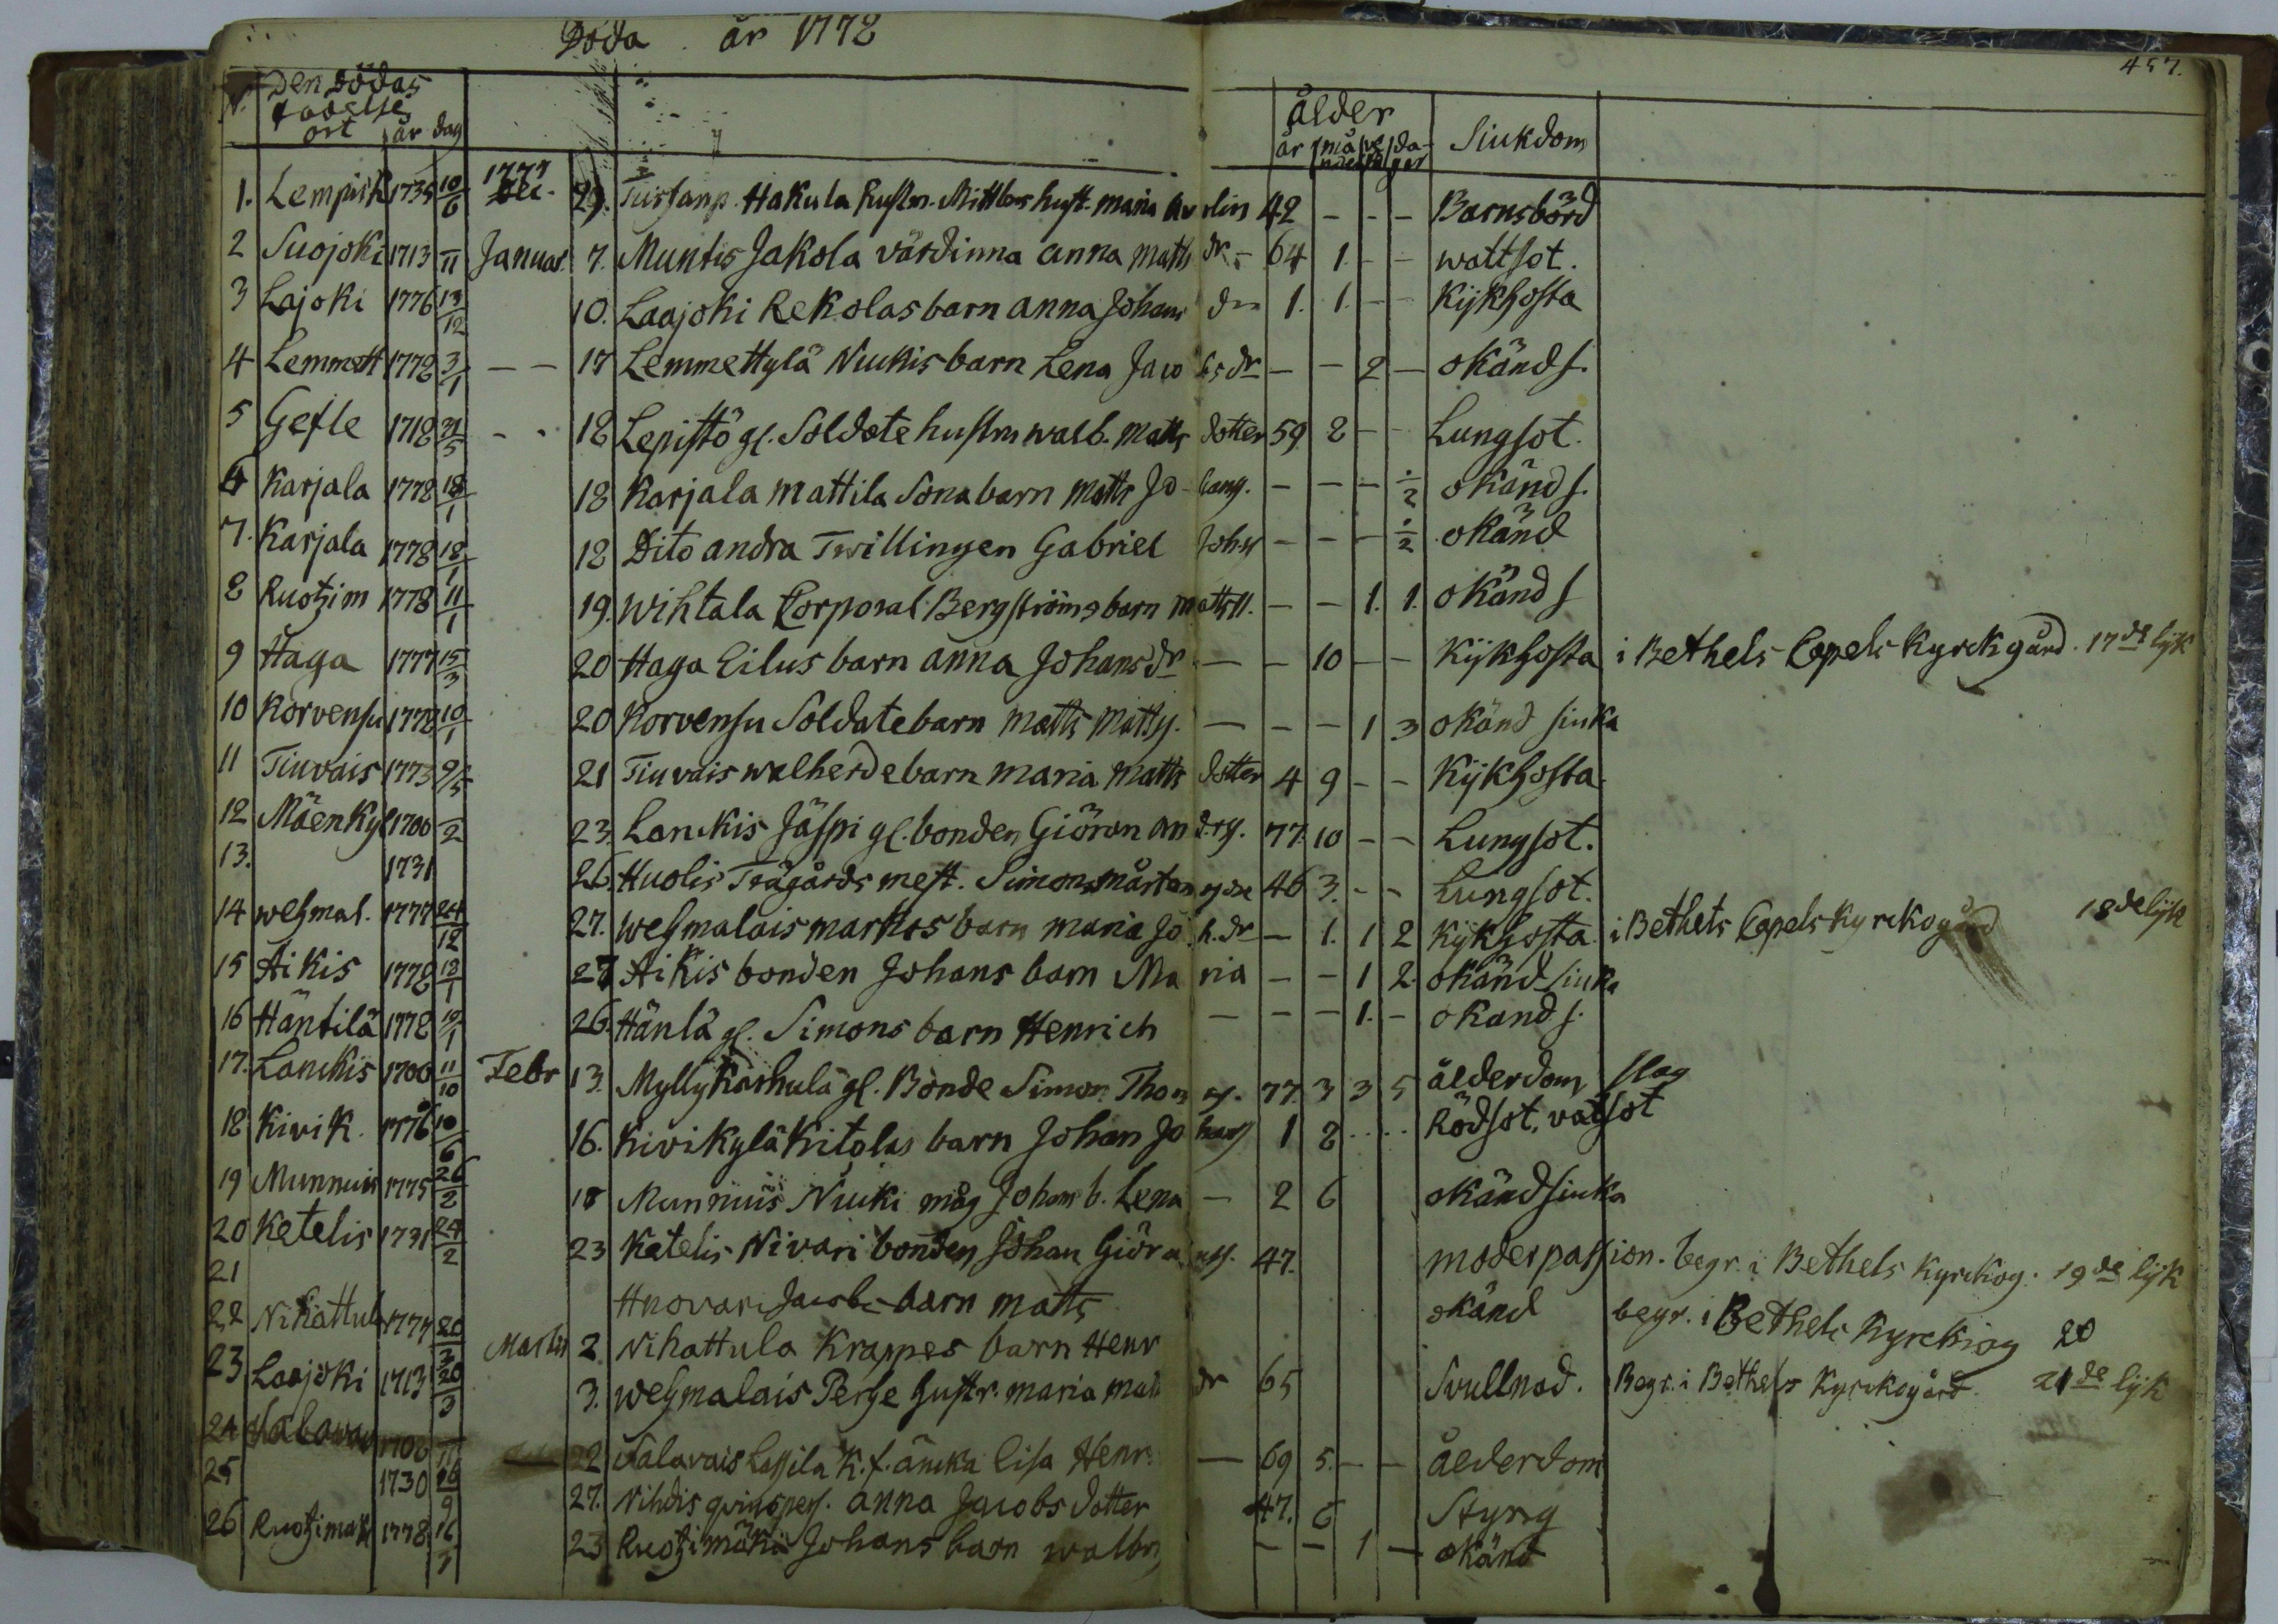 Döda år 1778
457.
N. Den Dödas födelse ort år dag
ålder år månader ve da-gar Siukdom
1. Lempisk 1735 10/6 1777 Dec. 29. Hakula Rustm. Mittlers hust. maria 42 – – – Barnsbörd
2 Suojoki 1713 /11 Januar. 7. Muntis Jakola värdinna anna Matts dr. 64 1. – – wattsot.
3 Lajoki 1776 13/12 10. Laajoki Rekolas barn anna Johans dr 1. 1. – – Kijkhosta
4 Lemmett 1778 3/1 – – 17 Lemmettylä Niukis barn Lena Jacobs dr – – 2 – okänd s.
5 Gefle 1718 31/5 - - 18 Lepistö gl. Soldate hustru walb. Matts dotter 59 8 – – Lungsot.
6 Karjala 1778 18/1 18 Karjala Mattila Sona barn Matts Johans. – – – 1/2 okänd s.
7. Karjala 1778 18/1 18 Dito andra Twillingen Gabriel Johs – – – 1/2 okänd
8 Ruotzim 1778 11/1 19. Wihtala Corporal Bergströms barn Matts – – 1. 1. okänd s
9 Haga 1777 15/3 20 Haga Eilus barn anna Johans dr – – 10 – – Kijkhosta i Bethels Capels Kyrckgård. 17de lijk
10 Korvensu 1778 10/1 20 Korvensu Soldatebarn Matts Matts. – – – 1 3 okänd siuka
11 Tiuvais 1773 9/5 21 Tiuvais walherdebarn Maria Matts dotter 4 9 – – Kijkhosta.
12 Mäenkyl 1700 /2 23. Lanckis Jäspi gl. bonden Giöran Anders. 77. 10 – – Lungsot.
13. 1731 26. Huolis Trägårds mest. Simons mårten 46 3. – – Lungsot.
14 wehmal. 1777 24/12 27. Wehmalais markus barn maria Joh. dr – 1. 1 2 Kijkhosta. i Bethels Capels Kyrckogård 18de lijk
15 Aikis 1778 18/1 27 Aikis bonden Johans barn Maria – – 1 2. okänd siuka
16 Häntilä 1778 19/1 26. Häntä gl. Simons barn Henrich – – – 1. – okand s.
17. Lanckis 1700 11/10 Febr 13. Mylly Karhula gl. Bonde Simon Thomas. 77. 3 3 5 ålderdom slag
18 Kivik. 1776 10/6 16. Kivikylä Kitolas barn Johan Johans 1 8 .... Rödsot, vatsot
19 Munnuis 1775 26/2 18 Munnuis Niuki måg Johans b. Lena – 2 6 okänd siuka
20 Ketelis 1731 24/2 23 Ketelis Nivari bonden Johan Giörans. 47. moderpassion. begr. i Bethels Kyrckog. 19de lijk
21 Hnovari Jacobs barn matts okänd begr. i Bethels Kyrckiog 20
22 Nihattul 1777 20/3 Martii 2 Nihattula Krappes barn Henr
23 Laajoki 1713 20/3 3. Wehmalais Perhe hustr. maria matts dr 65 Svullnad. Begr. i Bethels Kyrckogård. 21de lijk
24 1708 /11 22 Salavais Lassila k. f. äncka lisa Henr – 69 5. – – Ålderdom
25 1730 26/9 27. Nihdis qvinspers. anna Jacobs dotter 47. 6 Styng
26 Ruotzimäk 1778 16/3 23 Ruotzimäki Johans barn walbr – – 1 – okänd